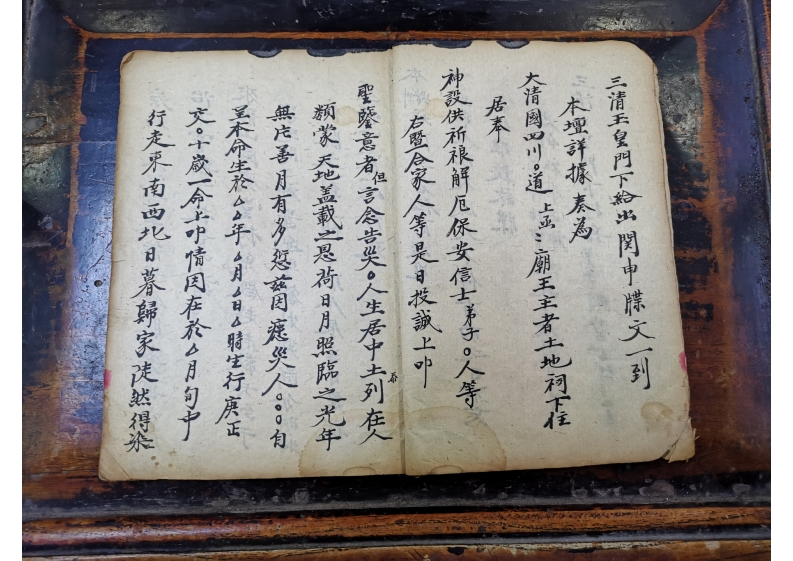 三清玉皇門下給出関申牒文一到
本壇詳據奏為
大清國四川○道上亟ミ廟王主者土地祠下住
居奉
神設供祈禳解厄保安信士弟子○人等
右暨合家人等是日投誠上叩
聖鑒意者但言念告災○人生居中土列在人
類蒙天地盖載之恩荷日月照臨之光年
無片善月有多愆兹因瘧災人○○○自
呈本命生於△△年△月△日△時生行庚正
交○十歲一命上叩情因在於△月旬中
行走東南西北日暮歸家陡然得染